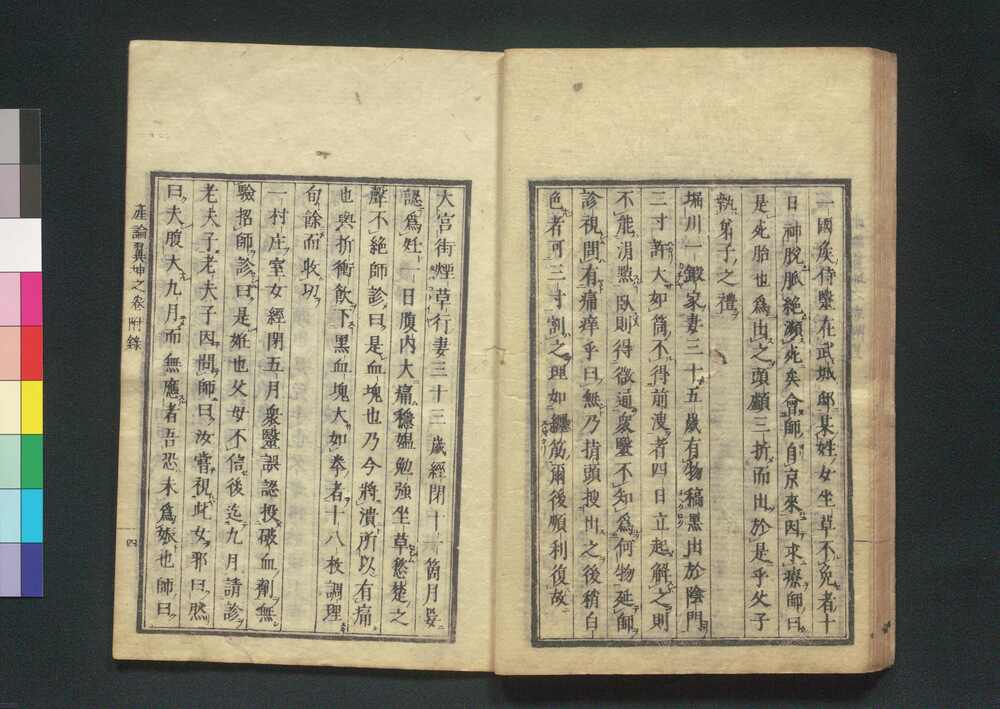 一國矦侍毉在武城邸某姓女坐草不免者十
日神脫脈絶瀕死矣會師自京來因求療師曰
是死胎也爲出之頭顱三折而出於是乎父子
執弟子之禮
堀川一鍛家妻三十五歲有物稿黑出於陰門
三寸許大如筒不得前溲者四日立起解之則
不能涓㸃臥則得微通衆毉不知爲何物延師
診視間有痛痒乎曰無乃揹頭搜出之後稍白
色者可三寸割之理如纒筋爾後順利復故
大宮街煙草行妻三十三歲經閉十一箇月毉
認爲妊一日腹内大痛穩媼勉強坐草愁楚之
聲不絶師診曰是血塊也乃今將潰所以有痛
也與折衝飮下黑血塊大如拳者十八枚調理
旬餘而收功
一村庄室女經閉五月衆毉誤認投破血劑無
驗招師診曰是姙也父母不信後迄九月請診
老夫子老夫子因問師曰汝嘗視此女邪曰然
曰夫腹大九月而無應者吾恐未爲娠也師曰
產論翼坤之卷附錄
四